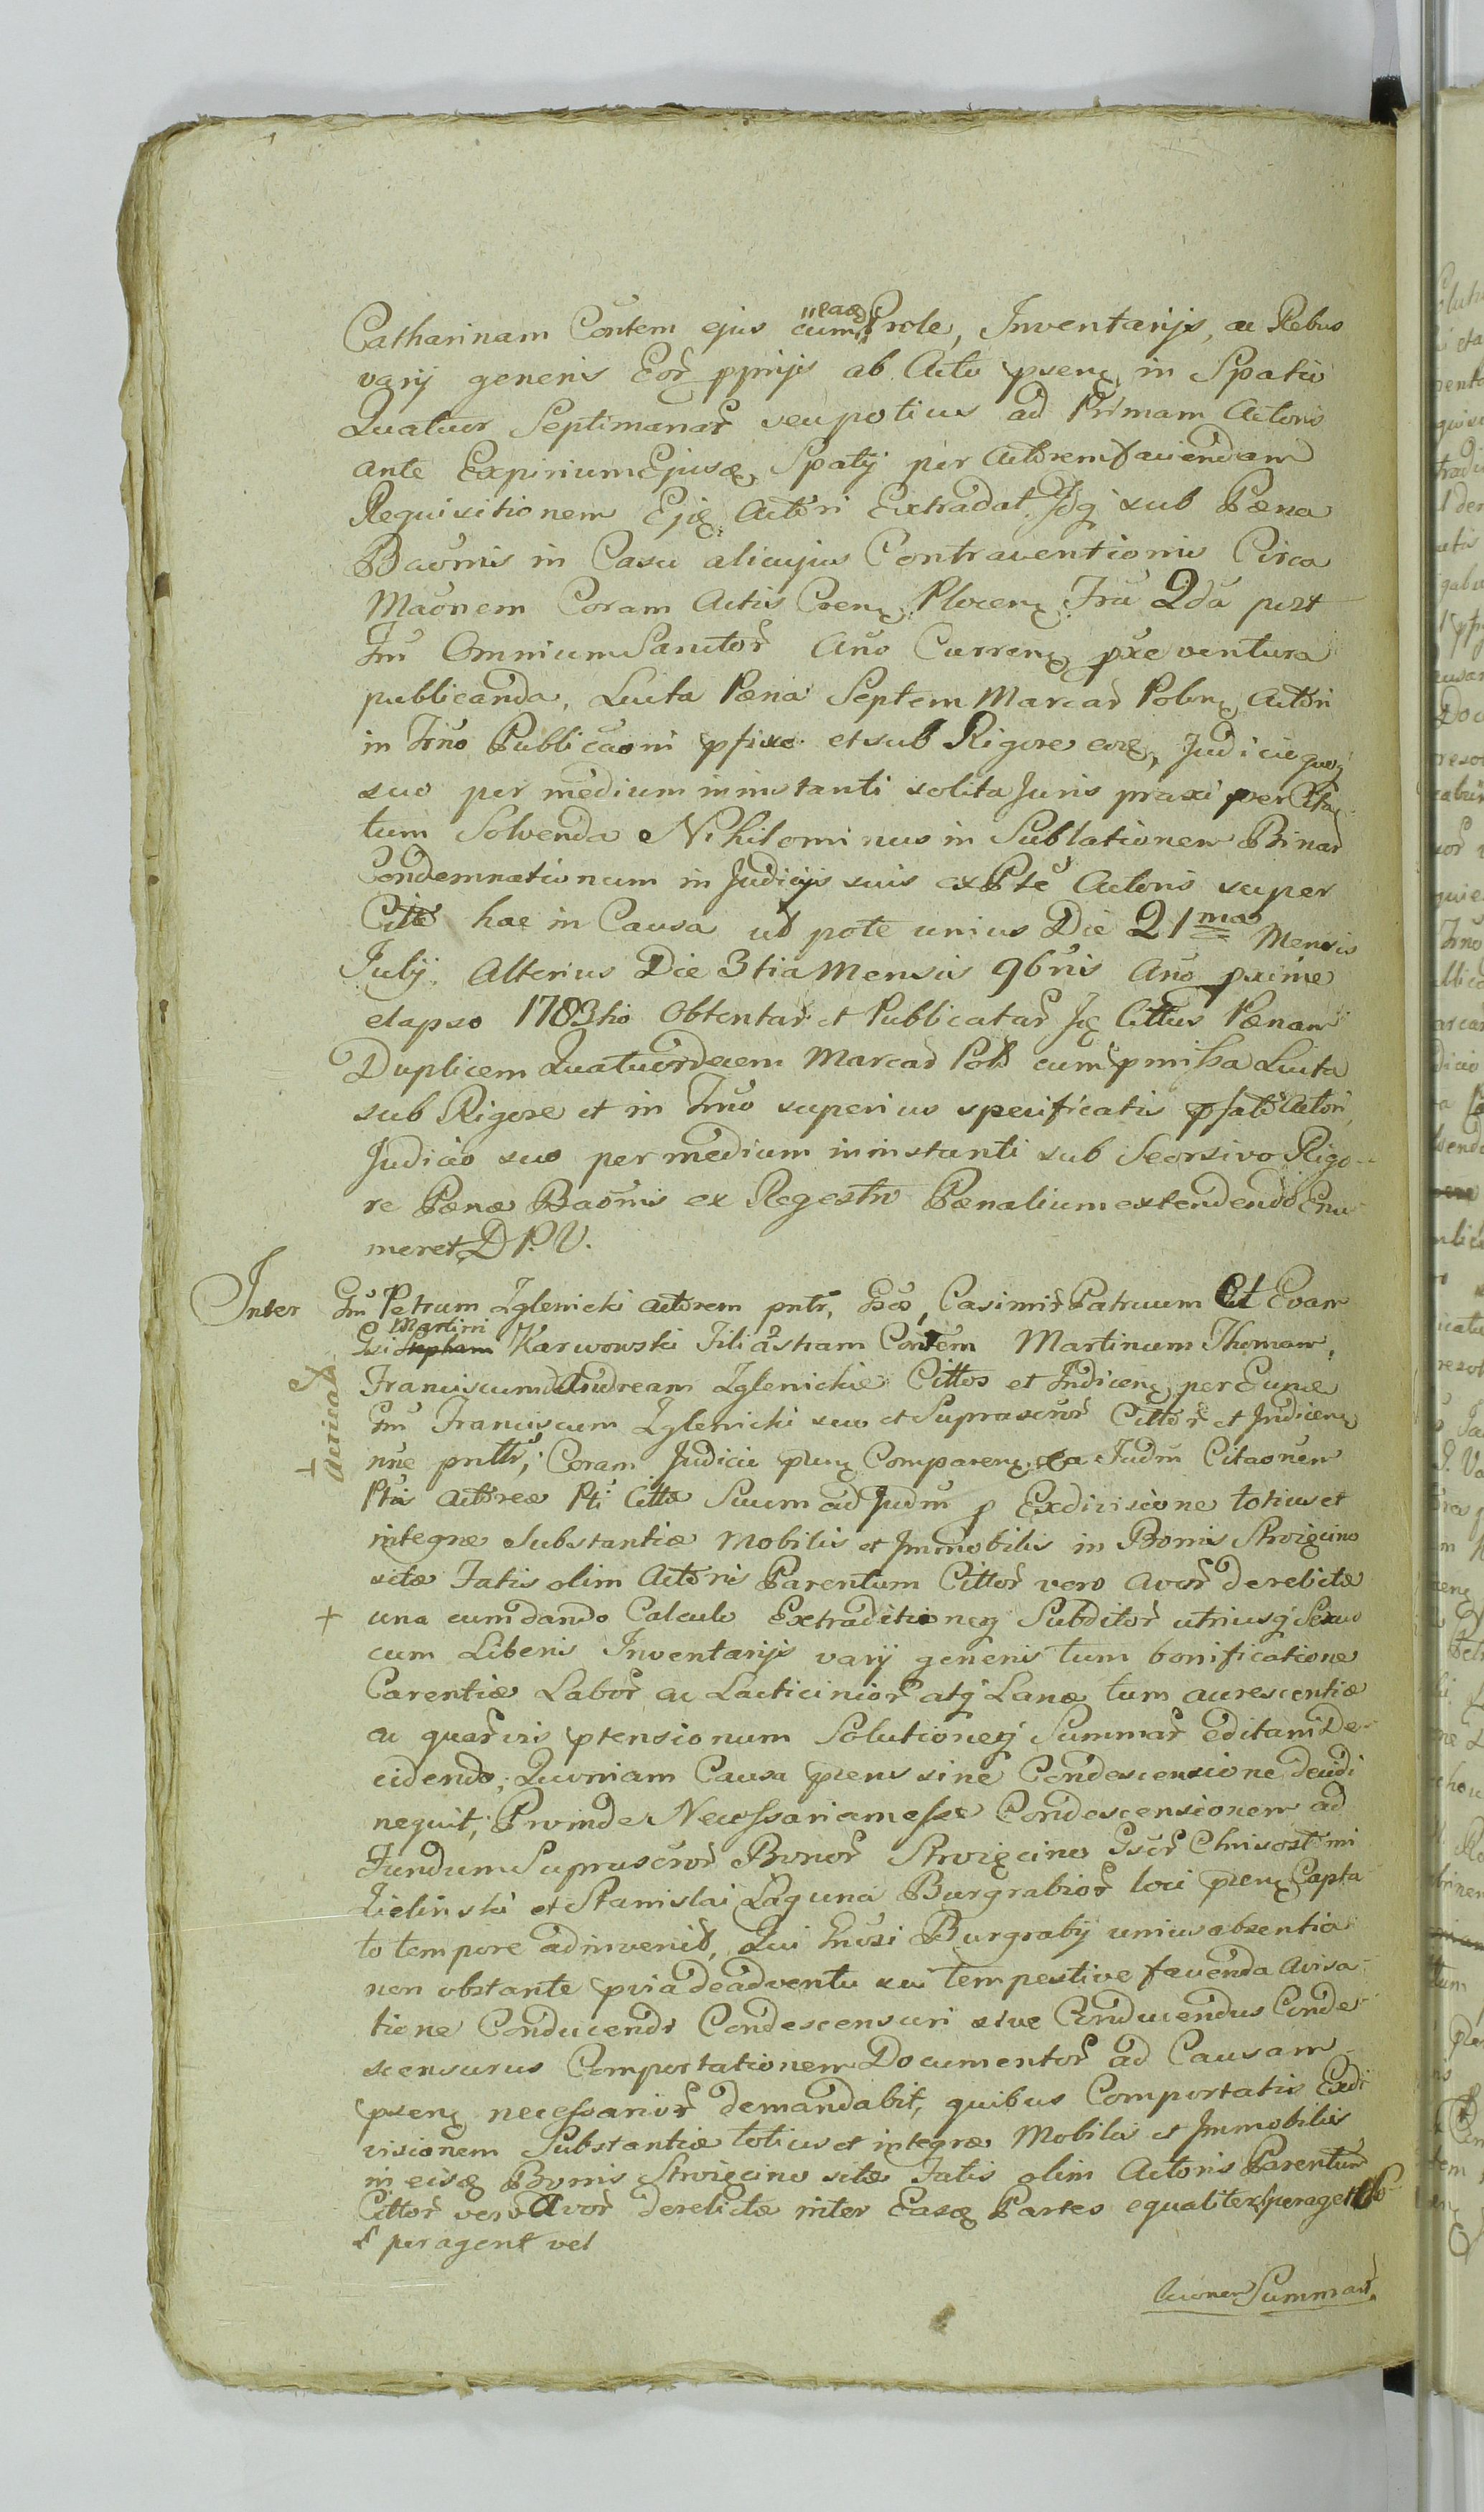 Catharinam Cõntem ejus cum eaq̃ Prole, Inventarijs, ac Rebus
varij generis Eor̃ pprijs ab Actu pseng in Spatio
Quatuor Septimanar̃ seu potius ad Primam Actoris
ante Expirium Ejusq̨ Spatij per Actorem faciendam
Requisitionem Ejq̨ Actori Extradat, Idq̨ sub Pæna
Baõnis in Casu alicujus Contraventionis Circa
Maõnem Coram Actis Creng Ploceng Fra 2dã post
Fm̃ Omnium Sanctor̃ Año Curreng pxe ventura
publicanda, Luita Pæna Septem Marcar̃ Poleng Actori
in Trño Publicaõni pfixo et sub Rigore eoq̨, Judicio quoq̨
suo per medium in instanti solita Juris praxi per Citaq̨
tum Solvenda Nihilominus in Sublationem Binar̃
Condemnationum in Judicijs suis ex Pte Actoris super
Citto hac in Causa ut pote unius Die 21ma Mensis
Julij. Alterius Die 3tia Mensis 9bris Año pxime
elapso 1783tio Obtentar̃ et Publicatar̃ Iq̨ Cittus Pænam
Duplicem Quatuordecem Marcar̃ Pol. cum pmissa Luita
sub Rigore et in Trño superius specificatis pfato Actori,
Judicio suo per medium in instanti sub Seorsivo Rigo-
re Pænæ Baõnis ex Regestro Pænalium extendendo Enu-
meret D P. V.
Inter Gm̃ Petrum Zglenicki Actorem pntr̃, Gsos, Casimir̃ Patruum Et Evam
Martini
Gsi Stephani Karwowski Filiastram Contem Martinum Thomam,
Franciscum et Andream Zglenickie Cittos et Indiceng per Eumq̨
Gm̃ Franciscum Zglenicki suo et Suprascr̃or̃ Cittor̃ et Indiceng
nñe pnttr̃; Coram Judicio pseng Compareng ea Judm̃ Citaõnem
Ptis Actoreæ Pti Cittæ Suum ad Judm̃ p Exdivisione totius et
integræ Substantiæ Mobilis et Immobilis in Bonis Strożęcino
sitæ Fatis olim Actoris Parentum Cittor̃ vero Avor̃ derelictæ
+ una cum dando Calculo Extraditioneq̨ Subditor̃ utriusq̨ Sexus
cum Liberis Inventarijs varij generis tum bonificatione
Carentiæ Labor̃ ac Lacticinior̃ atq̨ Lanæ tum accrescentiæ
ac quar̃vis ptensionum Solutioneq̨ Summar̃ editam De-
cidendo; Quoniam Causa psens sine Condescensione decidi
nequit; Proinde Necessariam esse Condescensionem ad
Fundum Suprascr̃or̃ Bonor̃ Strożęcino Gsor̃ Chrisostomi
Zieliński et Stanislai Łaguna Burgrabior̃ loci pseng Capta-
to tempore adinvenit, Qui Gnosi Burgrabij unius absentia
non obstante pvia de adventu sui tempestive facienda Avisa-
tione Conducendi Condescensuri sive Conducendus Conde-
scensurus Comportationem Documentor̃ ad Causam
pseng necessarior̃ demandabit, quibus Comportatis Exdi-
visionem Substantiæ totius et integræ Mobilis et Immobilis
in eisq̨ Bonis Strożęcino sitæ Fatis olim Actoris Parentum
Cittor̃ vero Avor̃ derelictæ inter Easq̨ Partes equaliter peraget
peragent vel
Summar̃